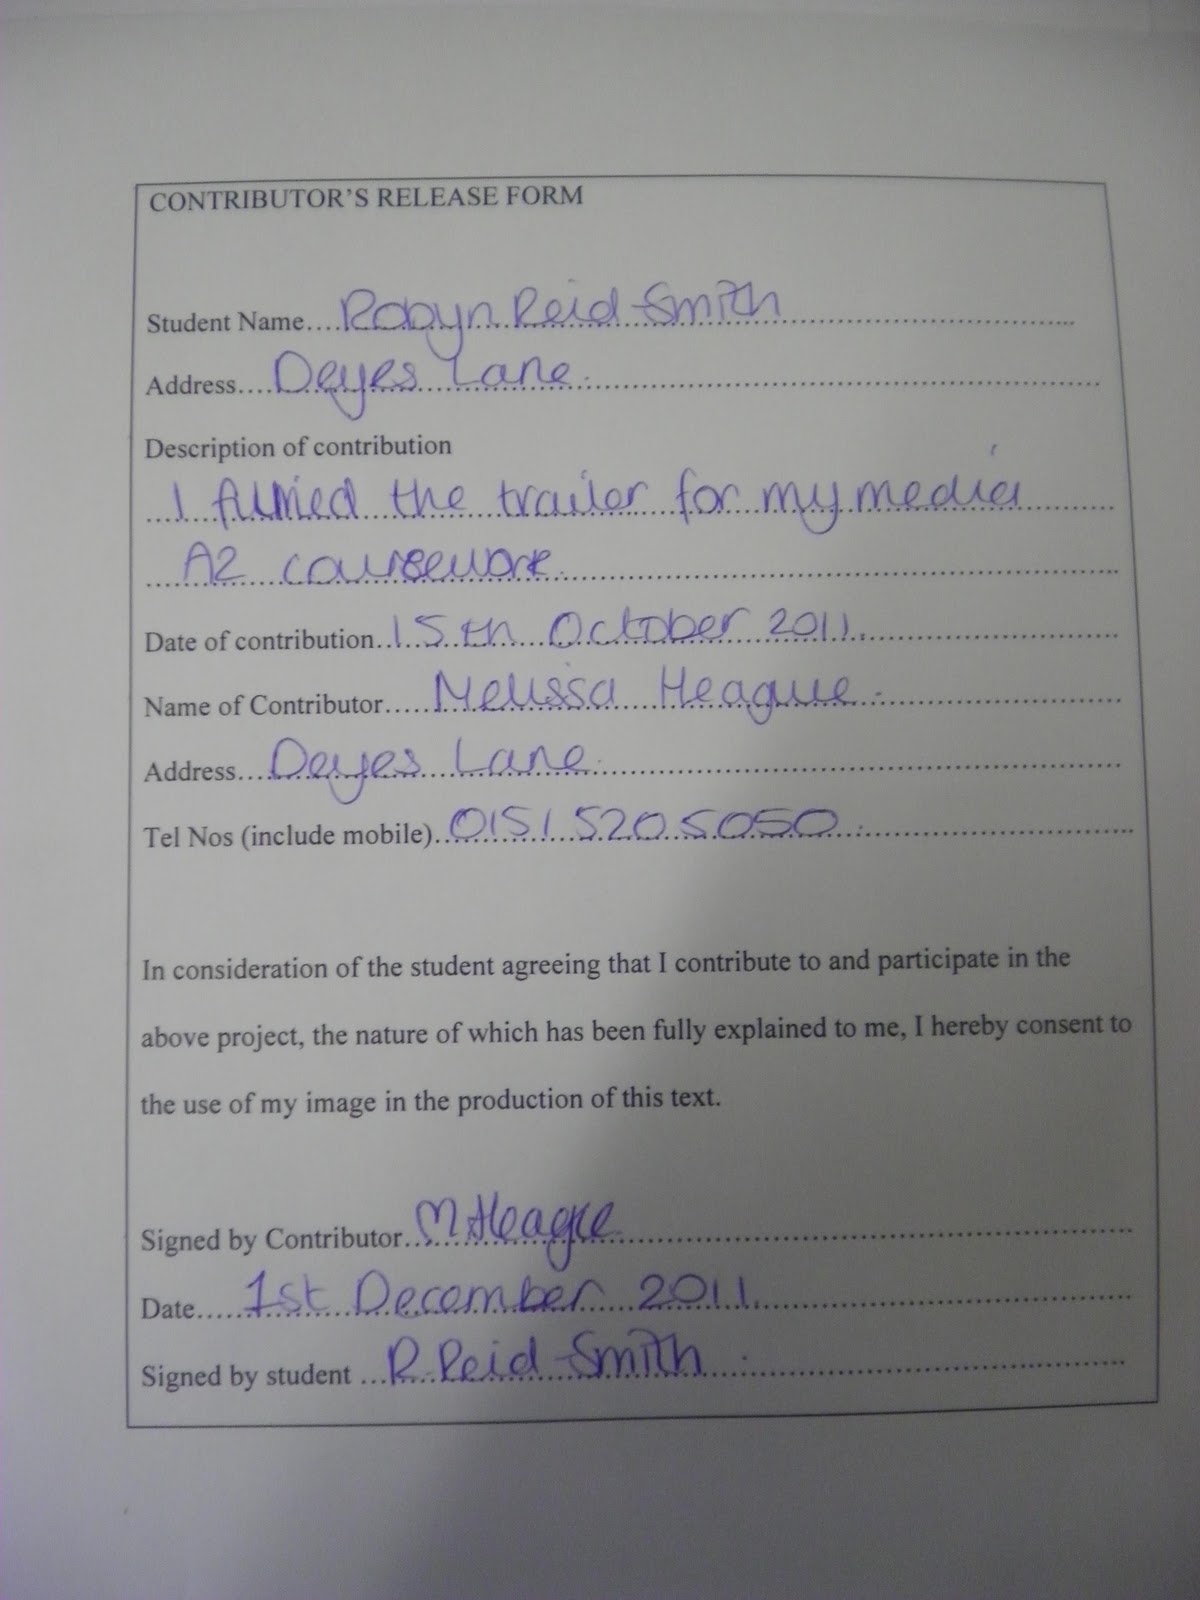 CONTRIBUTOR'S RELEASE FORM
Student Name....Robyn Reid-Smith
Address....Deyes Lane.
Description of contribution
I filmed the trailer for my media
A2 coursework.
Date of contribution..15th October 2011.
Name of Contributor.....Melissa Heague.
Address....Deyes Lane.
Tel Nos (include mobile)..0151 520 5050
In consideration of the student agreeing that I contribute to and participate in the
above project, the nature of which has been fully explained to me, I hereby consent to
the use of my image in the production of this text.
Signed by Contributor...M Heague
Date.....1st December 2011
Signed by student ...R.Reid-Smith